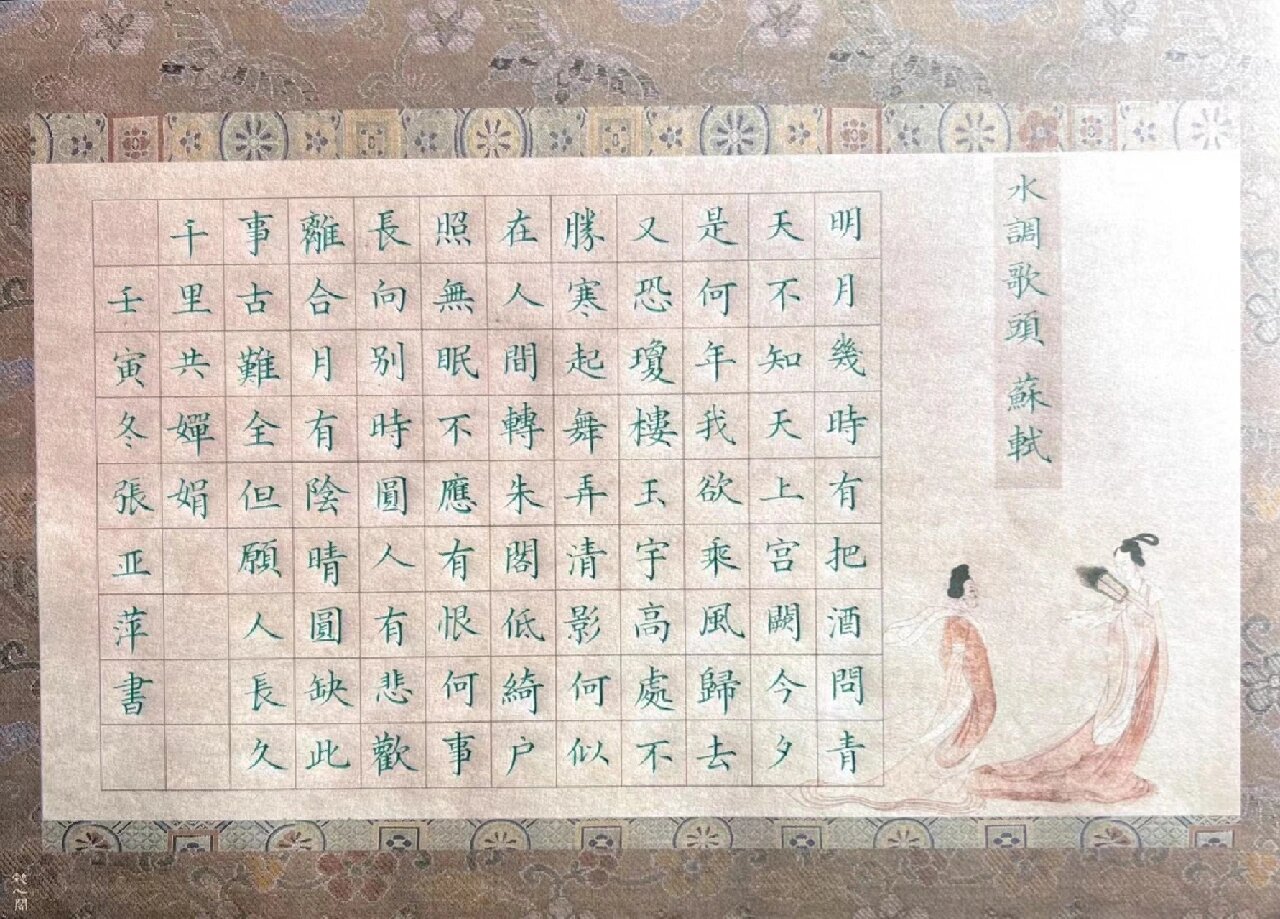 水調歌頭 蘇軾
明月幾時有把酒問青
天不知天上宫闕今夕
是何年我欲乘風歸去
又恐瓊樓玉宇高處不
勝寒起舞弄清影何似
在人間轉朱閣低綺户
照無眠不應有恨何事
長向别時圓人有悲歡
離合月有陰晴圓缺此
事古難全但願人長久
千里共嬋娟
壬寅冬張亚萍書